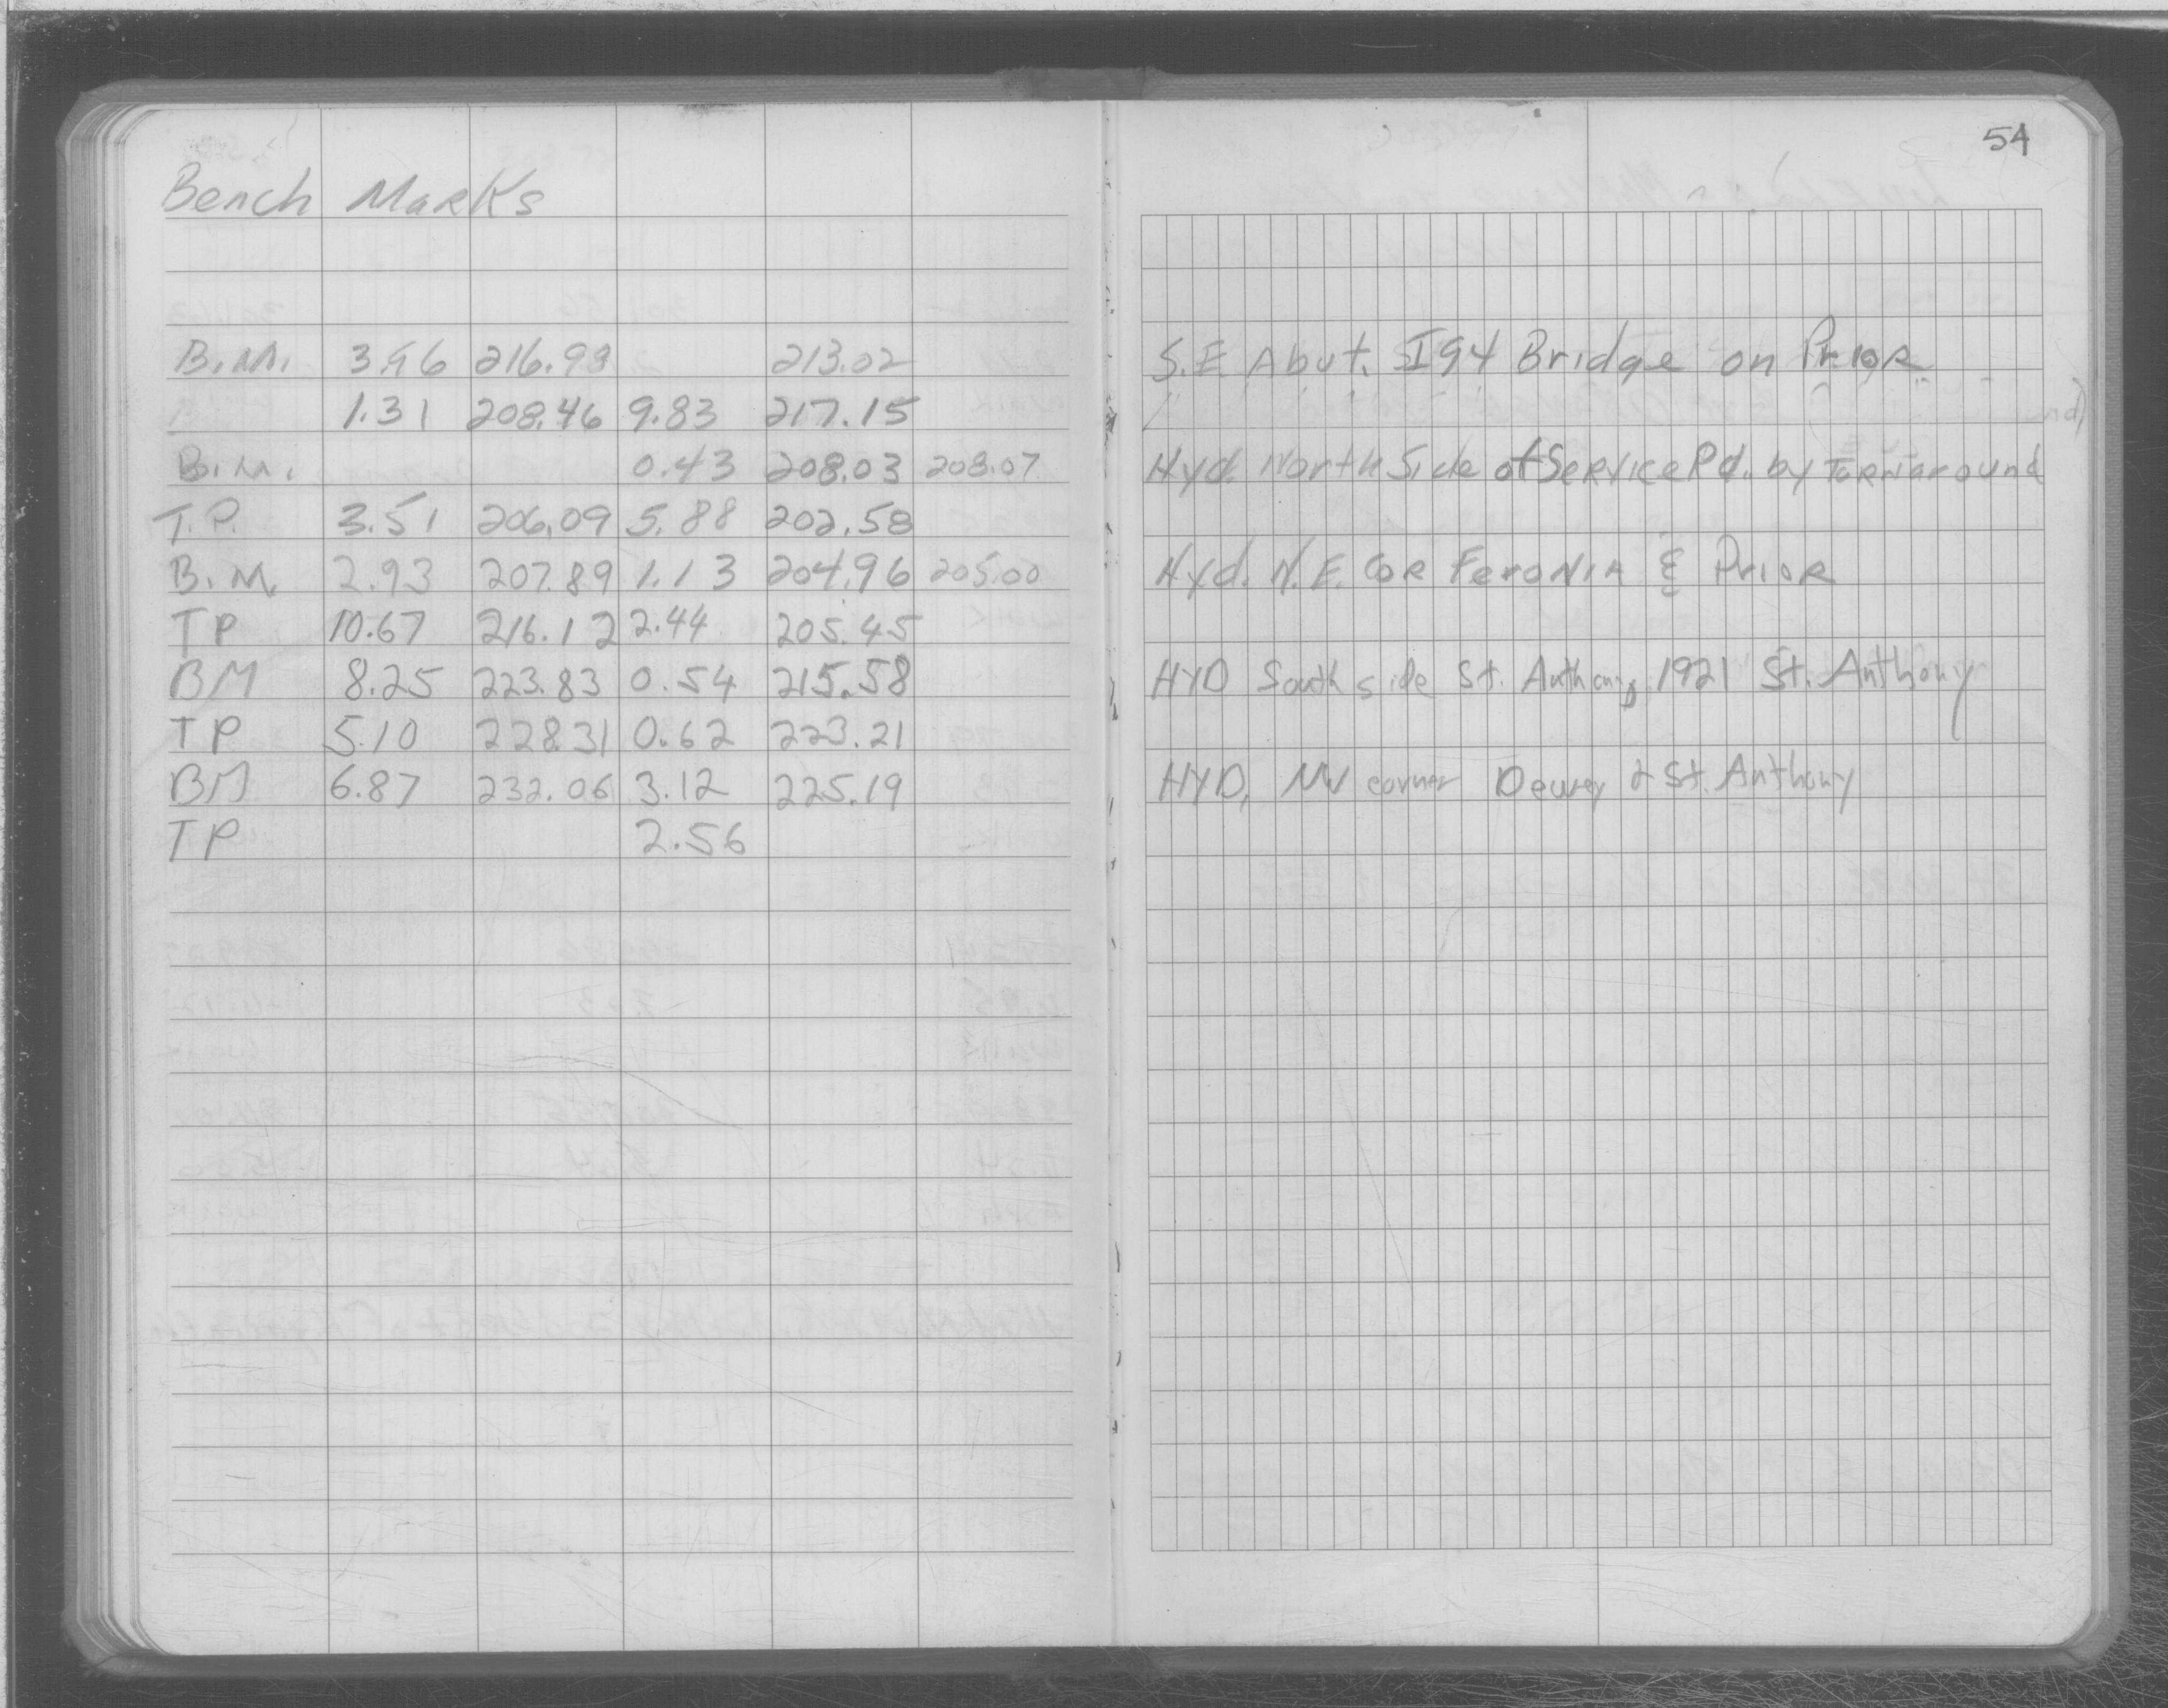 54
Bench Marks
B.M. 3.96 216.98 213.02 S.E. Abut. I94 Bridge on Prior
1.31 208.46 9.83 217.15
B.M. 0.43 208.03 208.07 Hyd. North Side of Service Rd. by Turnaround
T.P. 3.51 206.09 5.88 202.58
B.M. 2.93 207.89 1.13 204.96 205.00 Hyd. N.E. Cor Feronia & Prior
TP 10.67 216.12 2.44 205.45
BM 8.25 223.83 0.54 215.58 HYD South side St. Anthony 1921 St. Anthony
TP 5.10 228.31 0.62 223.21
BM 6.87 232.06 3.12 225.19 HYD, NW corner Dewey & St. Anthony
TP 2.56